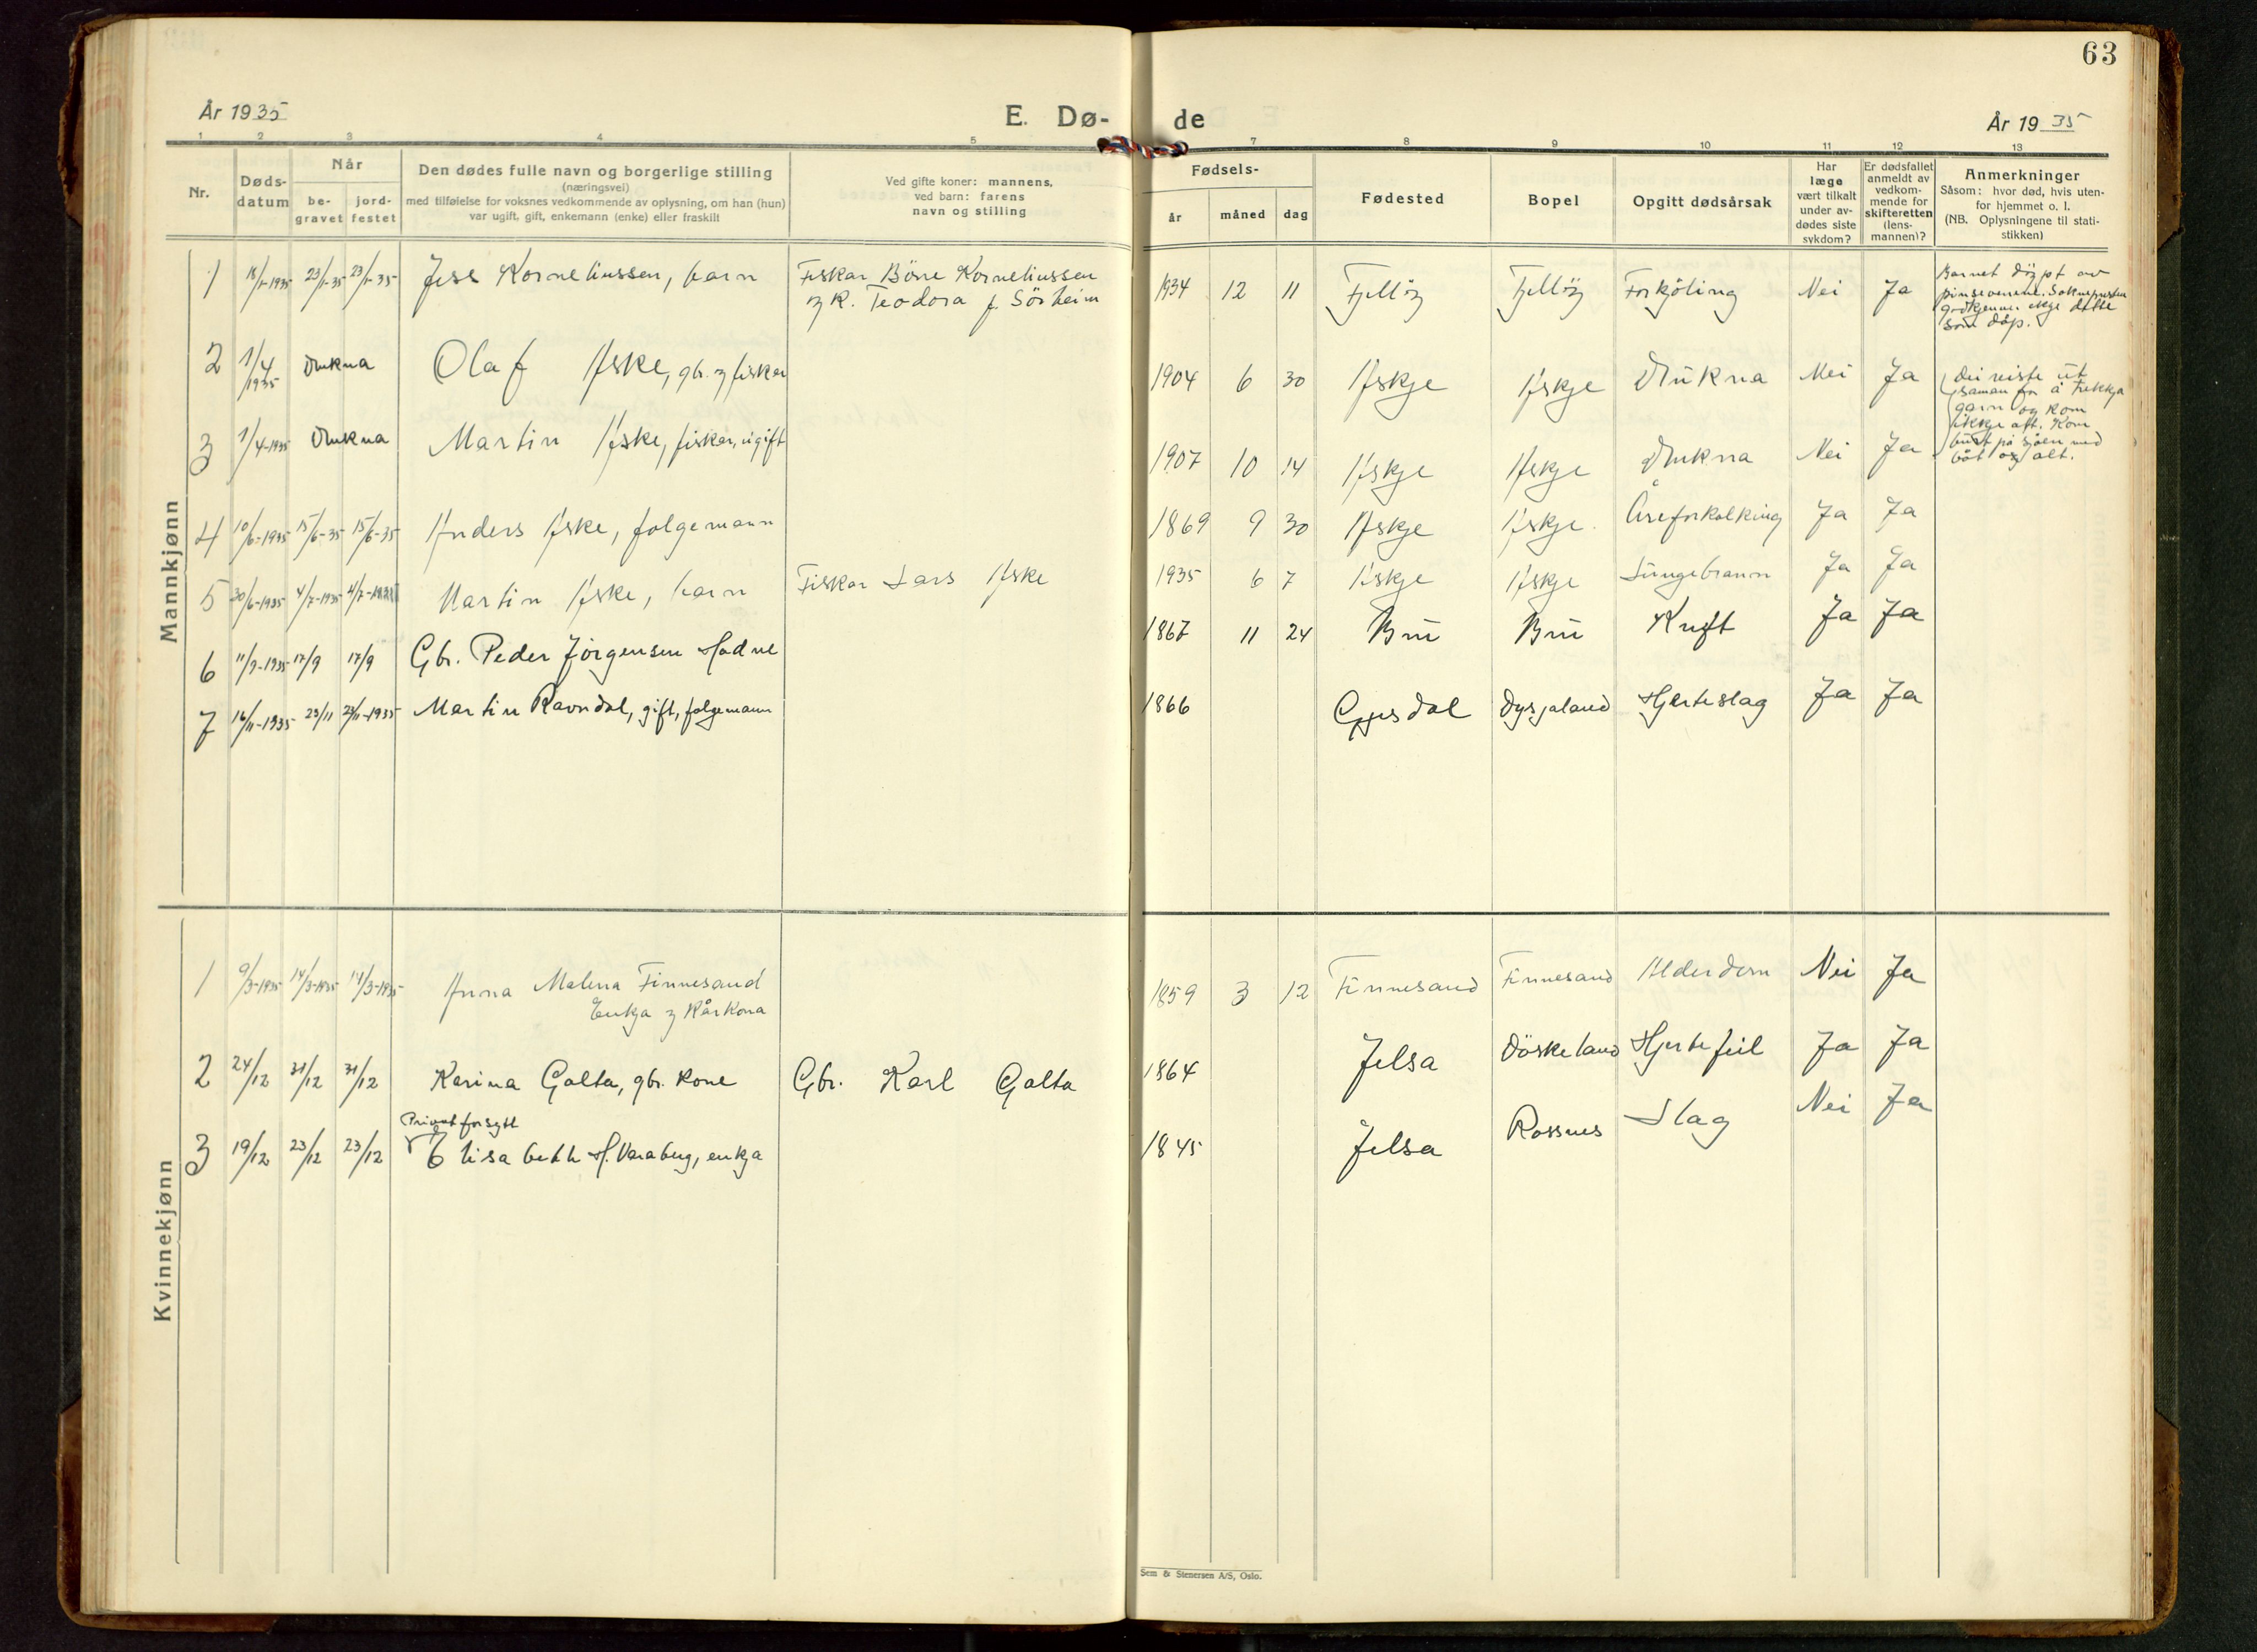 63
År 1935
E. Dø-
de
År 1935
1 2 3 4 5 7 8 9 10 11 12 13
Nr.
Døds-
datum
Når
be-
gravet
jord-
festet
Den dødes fulle navn og borgerlige stilling
(næringsvei)
med tilføielse for voksnes vedkommende av oplysning, om han (hun)
var ugift, gift, enkemann (enke) eller fraskilt
Ved gifte koner: mannens,
ved barn: farens
navn og stilling
Fødsels-
år
måned
dag
Fødested
Bopel
Opgitt dødsårsak
Har
læge
vært tilkalt
under av-
dødes siste
sykdom?
Er dødsfallet
anmeldt av
vedkom-
mende for
skifteretten
(lens-
mannen)?
Anmerkninger
Såsom: hvor død, hvis uten-
for hjemmet o. l.
(NB. Oplysningene til stati-
stikken)
Mannkjønn
1 18/1-1935 23/1-35 23/1-35 Jess Korneliussen, barn Fiskar Böne Korneliussen 1934 12 11 Fjellöy Fjellöy Forkjöling Nei Ja Barnet døypt av
og k. Teodora f. Sörheim pinsevenene. Soknepresten
godkjenner ikkje dette
som dåp.
2 1/4 1935 Drukna Olaf Aske, gbr. og fiskar 1904 6 30 Askje Askje Drukna Nei Ja Dei reiste ut
saman for å trekkja
garn og kom
ikkje att. Kom
burt på sjøen med
båt og alt.
3 1/4-1935 Drukna Martin Aske, fiskar, ugift 1907 10 14 Askje Askje Drukna Nei Ja
4 10/6-1935 15/6-35 15/6-35 Anders Aske, folgemann 1869 9 30 Askje Askje. Åreforkalking Ja Ja
5 30/6-1935 4/7-1935 4/7-1935 Martin Aske, barn Fiskar Lars Aske 1935 6 7 Askje Askje Lungebrann Ja Ja
6 11/9-1935 17/9 17/9 Gbr. Peder Jørgensen Hodne 1867 11 24 Bru Bru Kreft Ja Ja
7 16/11-1935 23/11 23/11-1935 Martin Ravndal, gift, folgemann 1866 Gjesdal Dysjaland Hjerteslag Ja Ja
Kvinnekjønn
1 9/3-1935 14/3-1935 14/3-1935 Anna Malena Finnesand 1859 3 12 Finnesand Finnesand Alderdom Nei Ja
Enkja og Kårkona
2 24/12 31/12 31/12 Karina Galta, gbr. kone Gbr. Karl Galta 1864 Jelsa Döskeland Hjertefeil Ja Ja
Privat forsytt
3 19/12 23/12 23/12 Elisabeth H. Varaberg, enkja 1845 Jelsa Rossnes Slag Nei Ja
Sem & Stenersen A/S, Oslo.